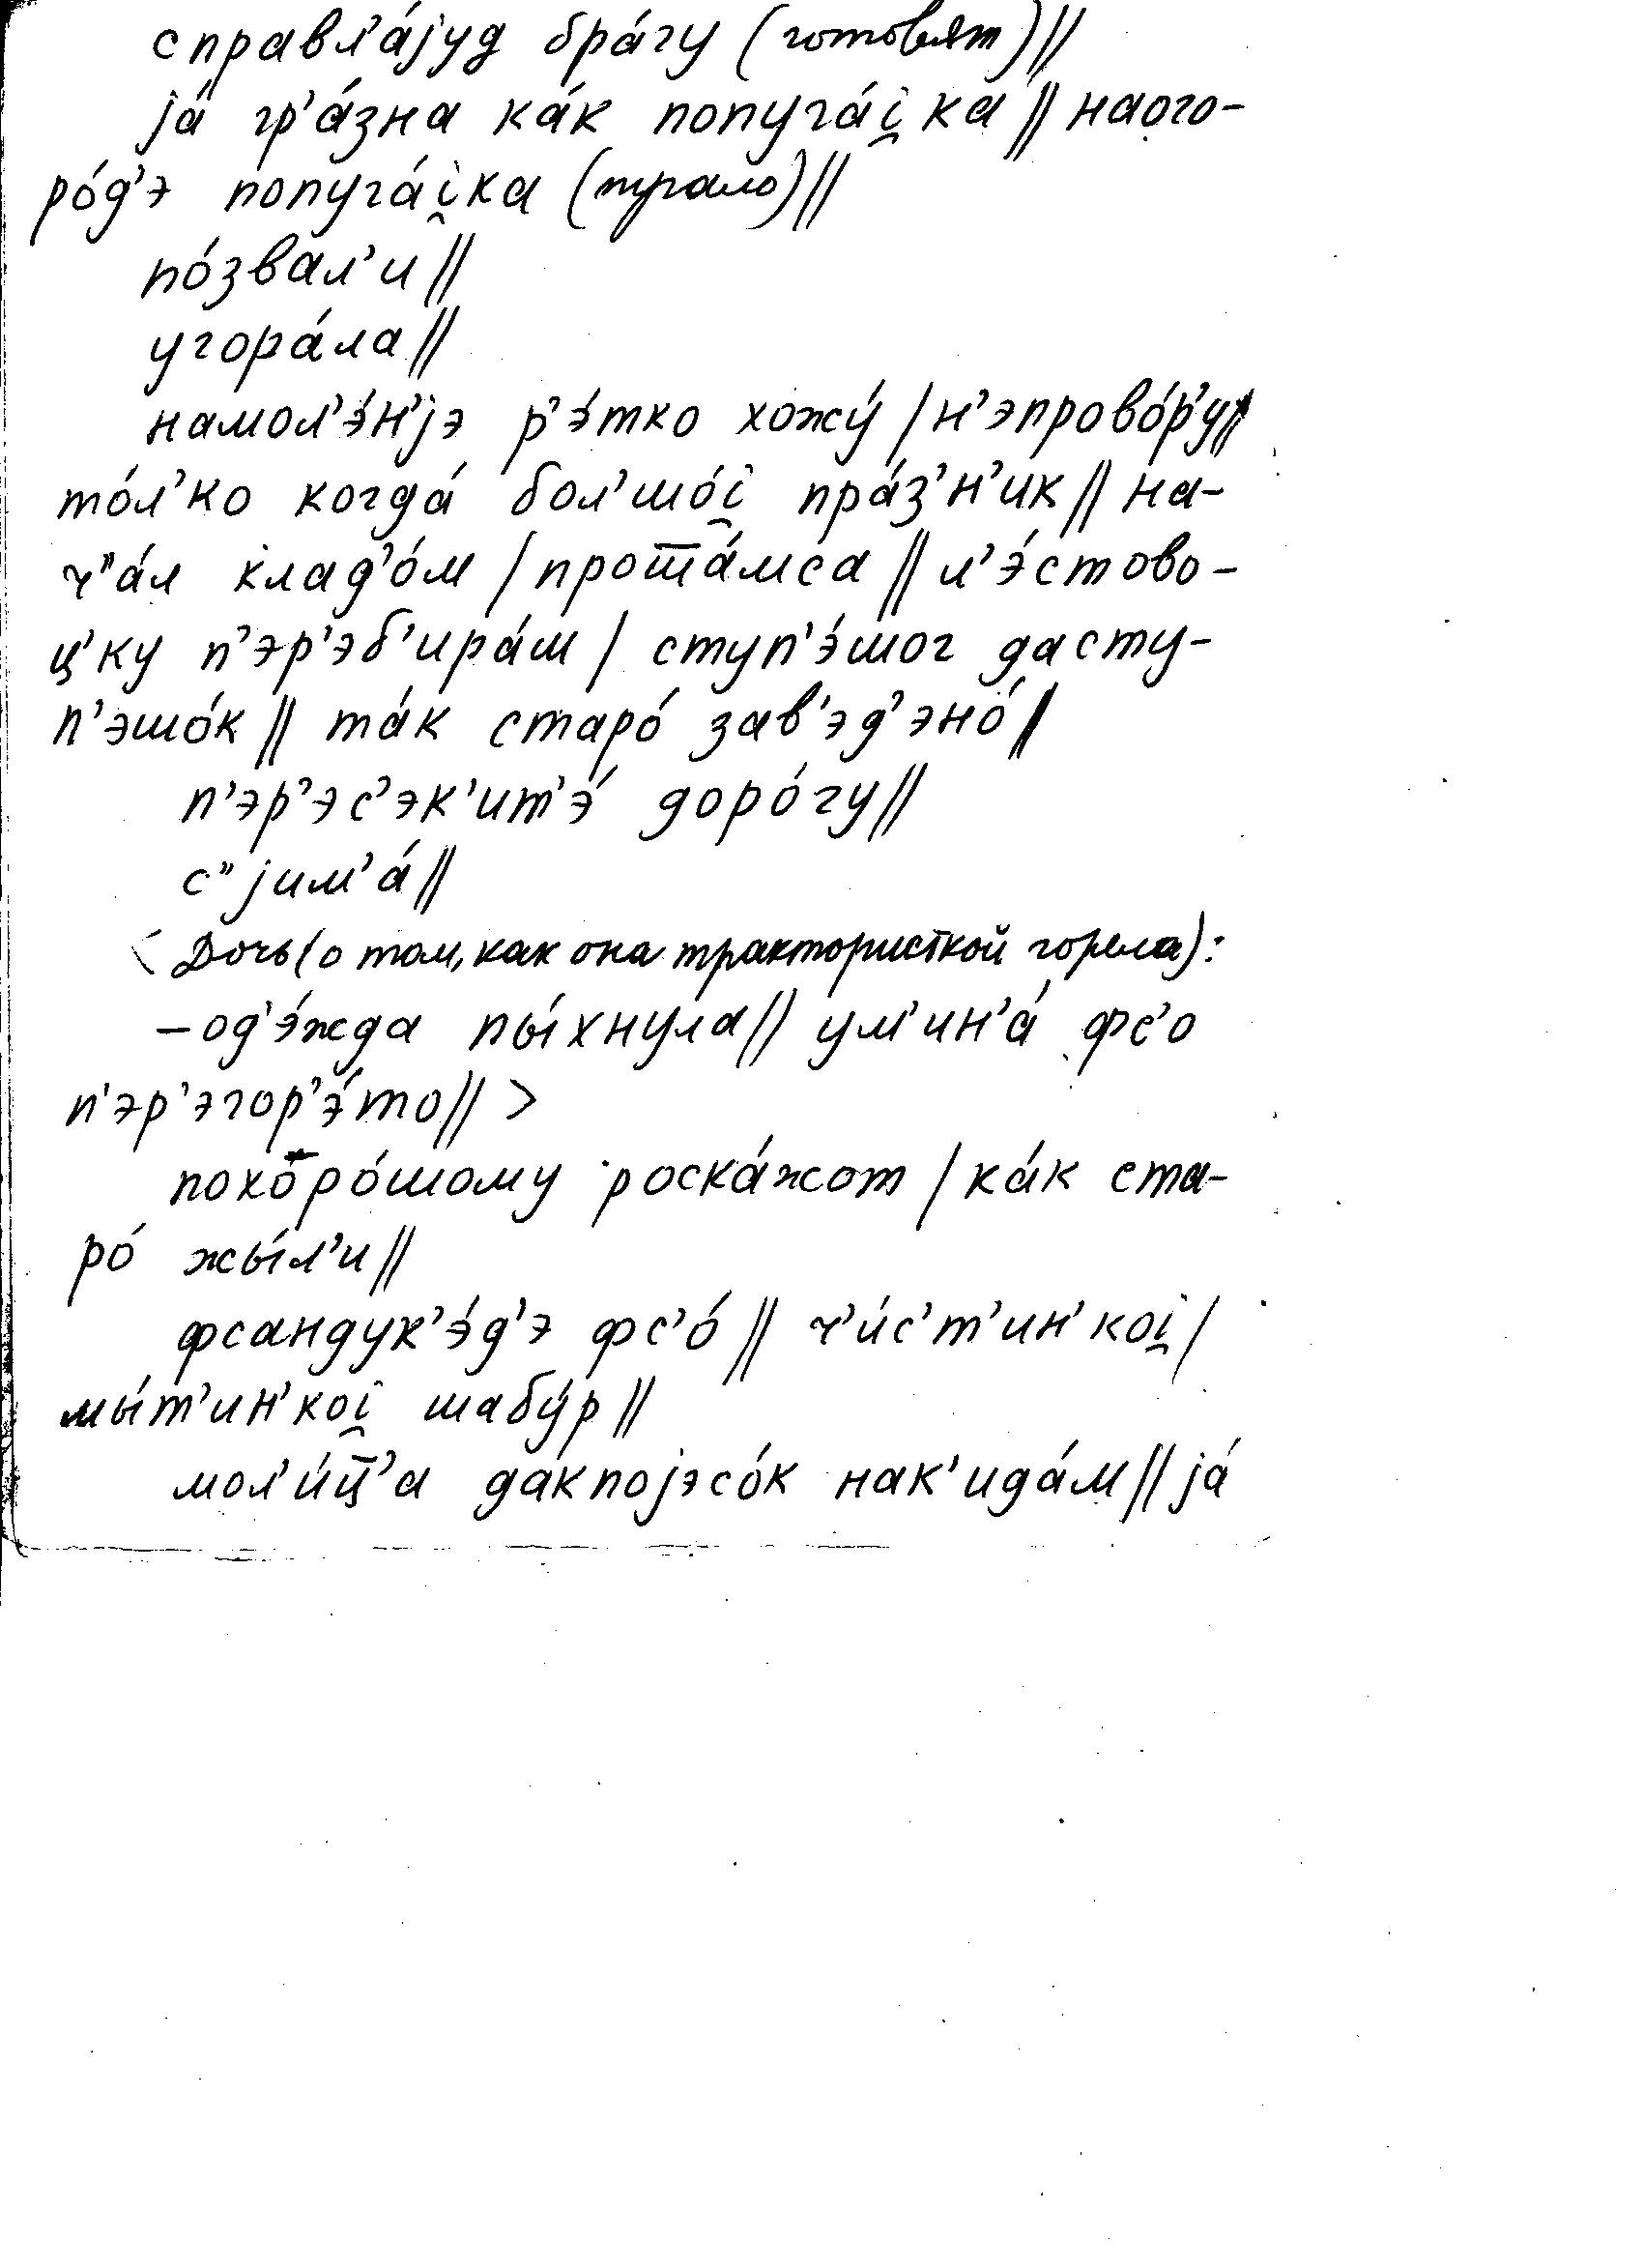 справл'а́јуд бра́гу (готовят)||
jа́ гр'а́зна ка́к попуга́i̯ка || наого-
ро́д'э попуга́i̯ка (пугало)||
по́звал'и ||
угора́ла ||
намол'э́н'јэ р'э́тко хожу́ | н'эпрово́р'у||
то́л'ко когда́ бол'шо́i̯ пра́з'н'ик || на-
ч"а́л клад'о́м | прот̅а́мса || л'э́стово-
ц'ку п'эр'эб'ира́м | ступ'э́шог дасту-
п'эшо́к || та́к старо́ зав'эд'эно́ ||
п'эр'эс'эк'ит'э́ доро́гу ||
с"јим'а́ ||
< Дочь (о том, как она трактористкой горела):
– од'э́жда пы́хнула || ум'ин'а́ фс'о
п'эр'эгор'э́то || >
похоро́шому роска́жот | ка́к ста-
ро́ жы́л'и ||
фсандук'э́д'э фс'о́ || ч'и́с'т'ин'коi̯ |
мы́т'ин'коi̯ шабу́р ||
мол'и́ц̅'а дакпојэсо́к нак'ида́м || jа́